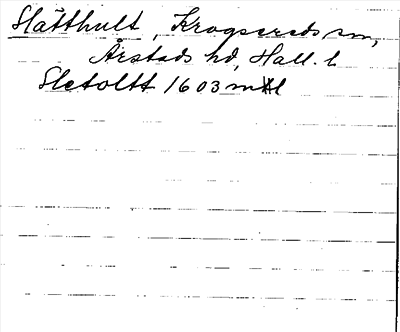 Slätthult, Krogsereds sn,
Årstads hd, Hall. l
Sletoltt 1603 mtl